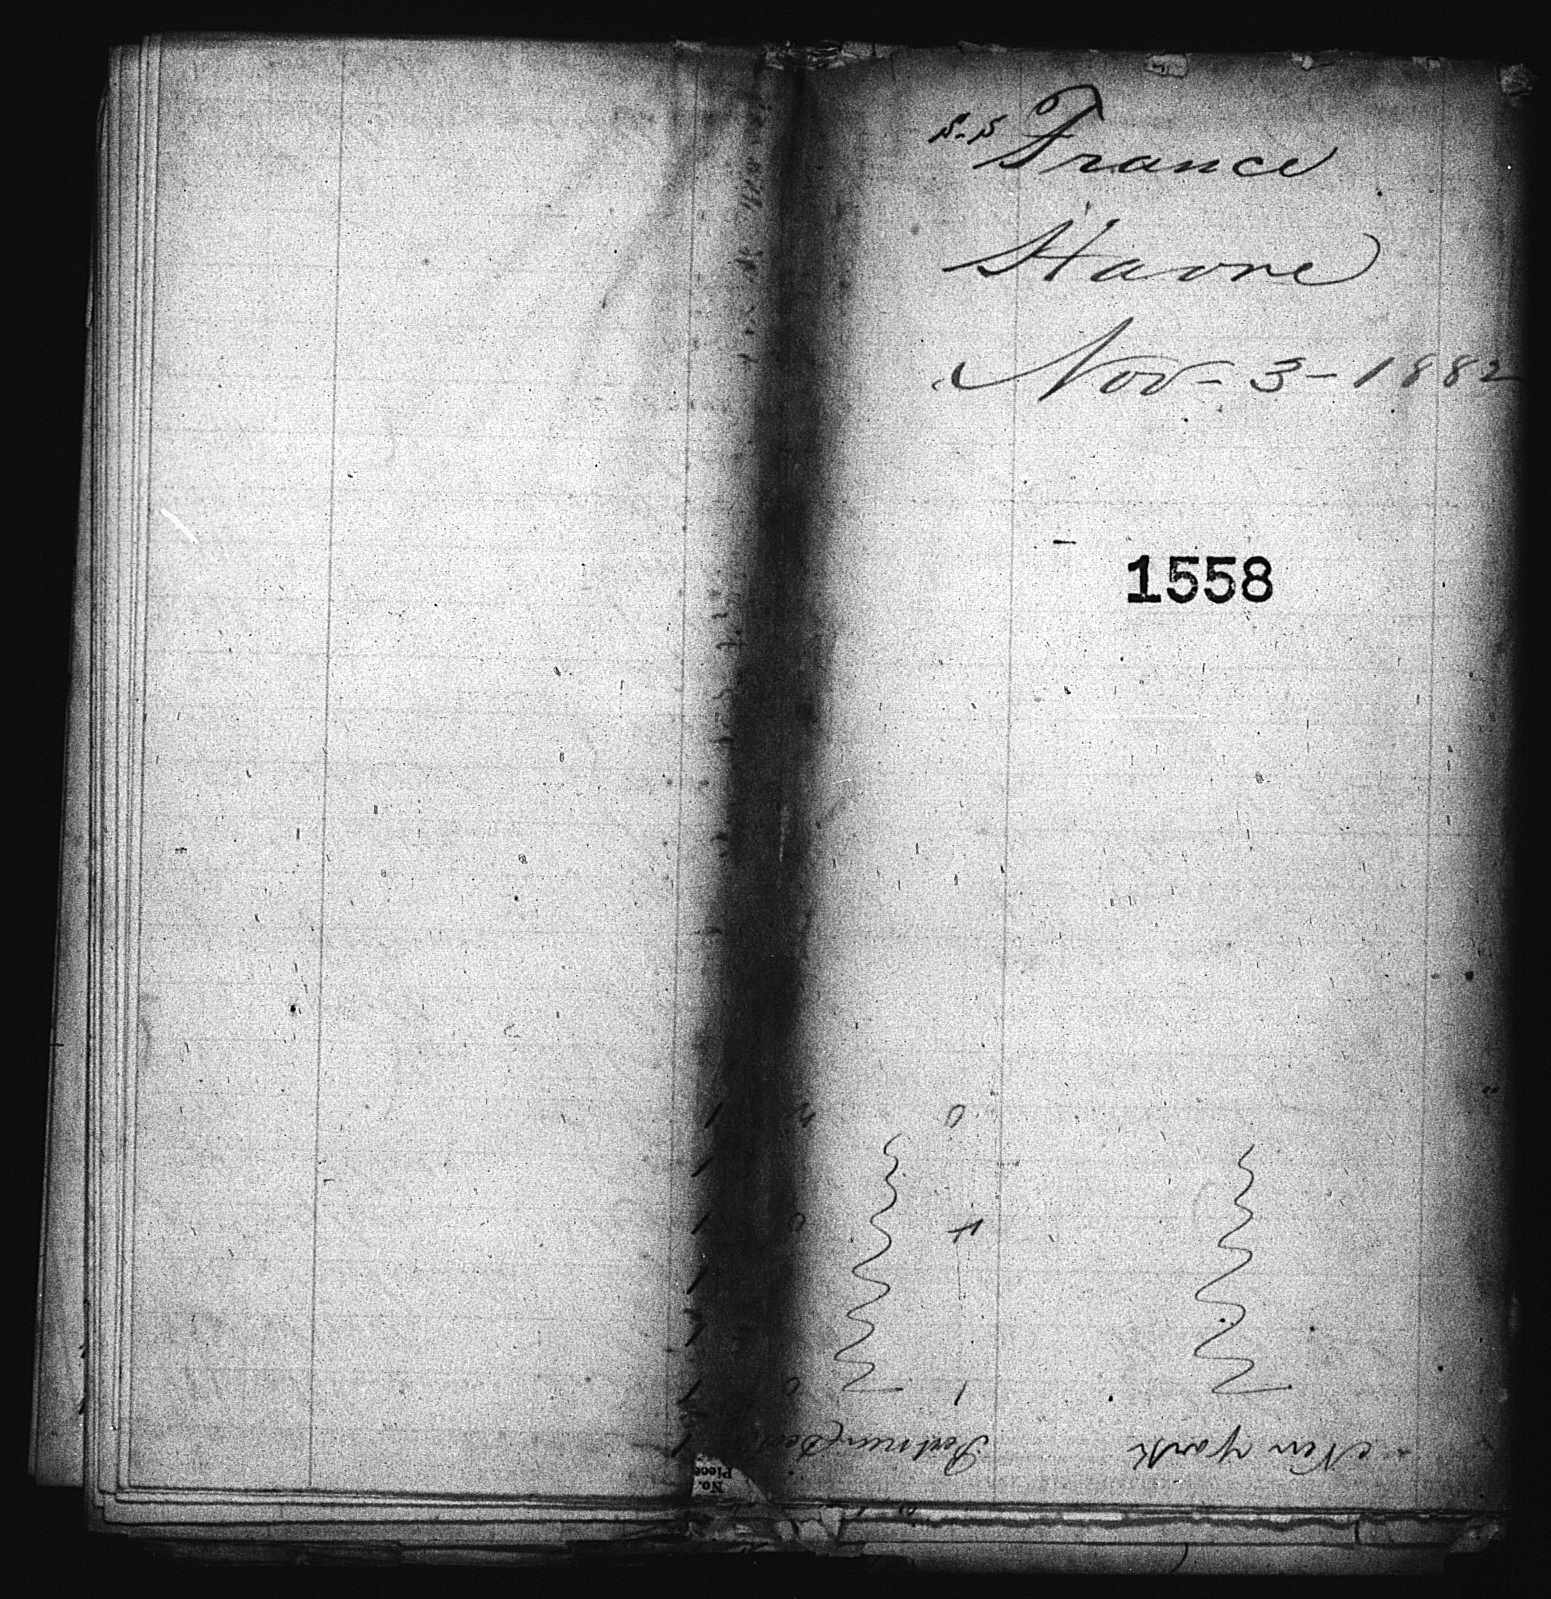 S.S France
Havre
Nov- 3- 1882
1558
New York
No.
Piece